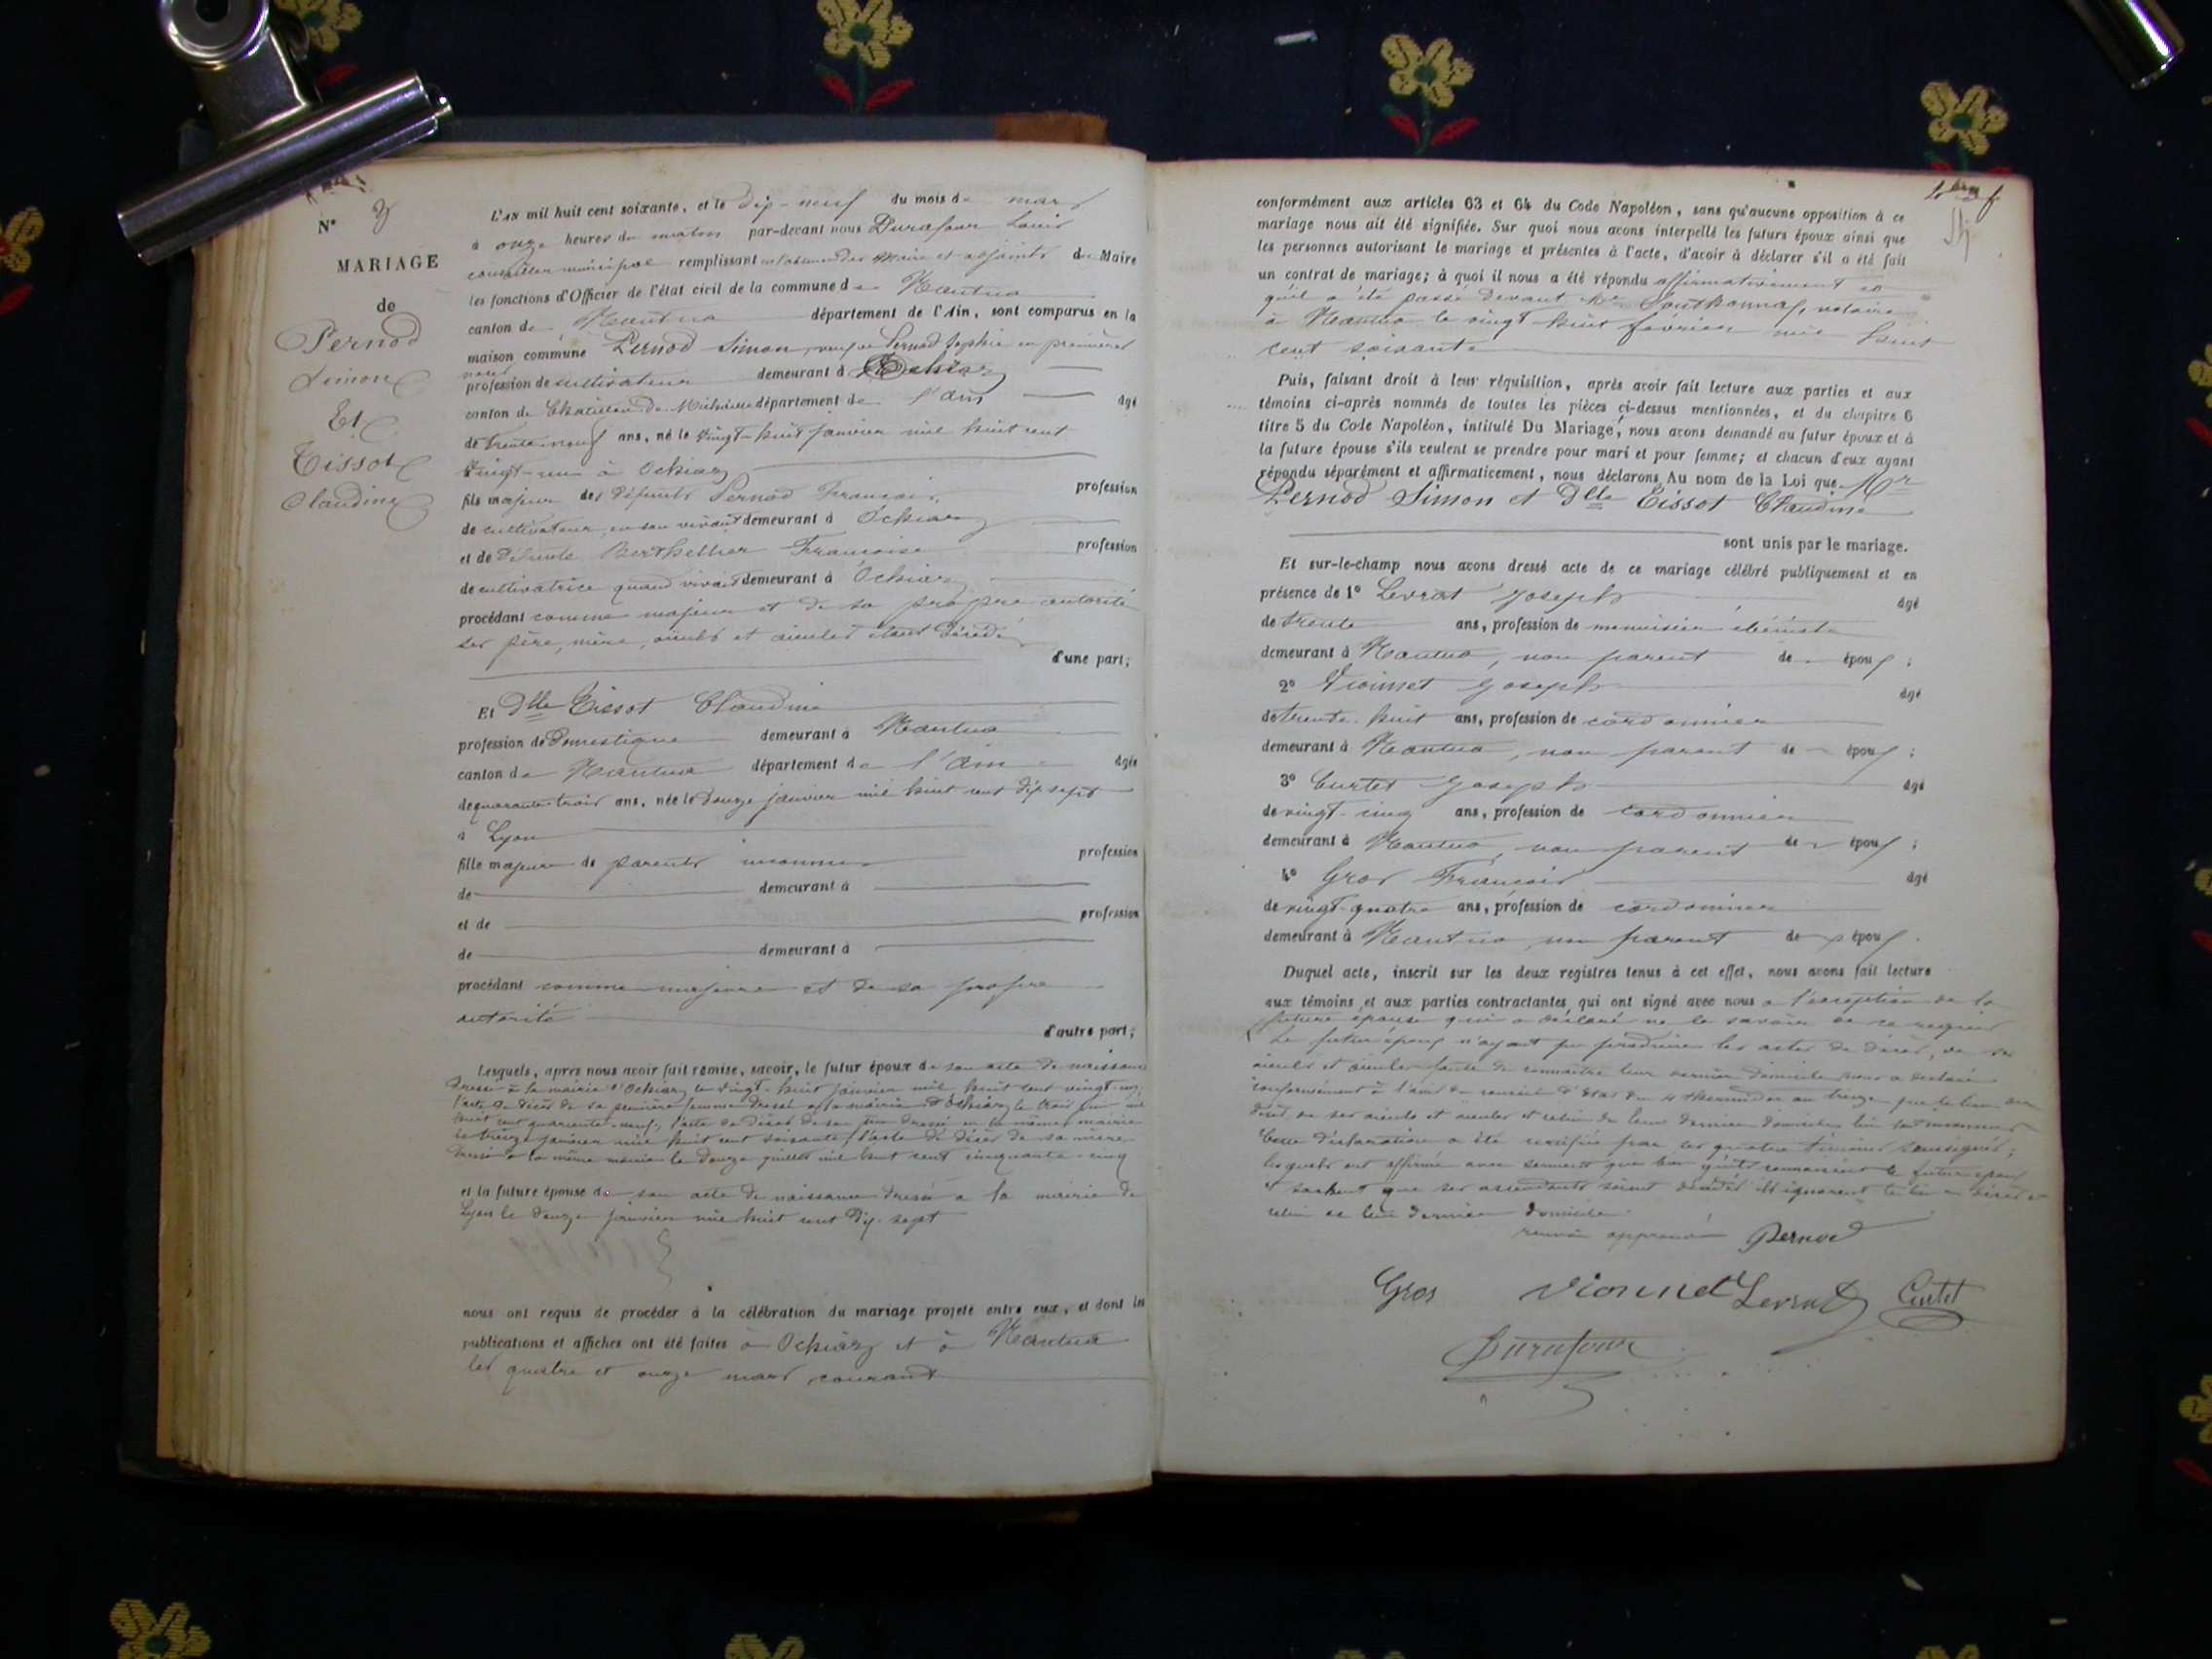 N° 3
MARIAGE
de
Pernod
Simon
Et
Tissot
Claudine
L'AN mil huit cent soixante, et le dix-neuf du mois de mars
à onze heures du matin par-devant nous Durafour Louis
conseiller municipal remplissant en l'absence des Maire et adjoints du Maire
les fonctions d'Officier de l'état civil de la commune de Nantua
canton de Nantua département de l'Ain, sont comparus en la
maison commune Pernod Simon, veuf de Pernod Sophie en premières
noces
profession de cultivateur demeurant à Ochiaz
canton de Chatillon de Michaille département de l'ain âgé
de trente-neuf ans, né le vingt-huit janvier mil huit cent
vingt-un à Ochiaz
fils majeur des défunts Pernod François, profession
de cultivateur, en son vivant demeurant à Ochiaz
et de défunte Berthellier Françoise profession
de cultivatrice quand vivait demeurant à Ochiaz
procédant comme majeur et de sa propre autorité
ses père, mère, aïeuls et aieules étant décédés
d'une part;
Et Dlle Tissot Claudine
profession de domestique demeurant à Nantua
canton de Nantua département de l'Ain âgée
de quarante trois ans, née le douze janvier mil huit cent dix sept
à Lyon
fille majeure de parents inconnus profession
de demeurant à
et de profession
de demeurant à
procédant comme majeure et de sa propre
autorité
d'autre part;
Lesquels, après nous avoir fait remise, savoir, le futur époux de son acte de naissance
dressé à la mairie d'Ochiaz le vingt-huit janvier mil huit cent vingt-un,
l'acte de décès de sa première femme dressé à la mairie d'Ochiaz le trois juin mil
huit cent quarante-neuf, l'acte de décès de son père dressé en la même mairie
le treize janvier mil huit cent soixante, l'acte de décès de sa mère
dressé à la même mairie le douze juillet mil huit cent cinquante-cinq
et la future épouse de son acte de naissance dressé à la mairie de
Lyon le douze janvier mil huit cent dix-sept
nous ont requis de procéder à la célébration du mariage projeté entre eux, et dont les
publications et affiches ont été faites à Ochiaz et à Nantua
les quatre et onze mars courant
conformément aux articles 63 et 64 du Code Napoléon, sans qu'aucune opposition à ce
mariage nous ait été signifiée. Sur quoi nous avons interpellé les futurs époux ainsi que
les personnes autorisant le mariage et présentes à l'acte, d'avoir à déclarer s'il a été fait
un contrat de mariage; à quoi il nous a été répondu affirmativement et
qu'il a été passé devant Me Southonnaf, notaire
à Nantua le vingt-huit février mil huit
cent soixante
Puis, faisant droit à leur réquisition, après avoir fait lecture aux parties et aux
témoins ci-après nommés de toutes les pièces ci-dessus mentionnées, et du chapitre 6
titre 5 du Code Napoléon, intitulé Du Mariage, nous avons demandé au futur époux et à
la future épouse s'ils veulent se prendre pour mari et pour femme; et chacun d'eux ayant
répondu séparément et affirmativement, nous déclarons Au nom de la Loi que Mr
Pernod Simon et Dlle Tissot Claudine
sont unis par le mariage.
Et sur-le-champ nous avons dressé acte de ce mariage célébré publiquement et en
présence de 1° Levrat Joseph âgé
de trente ans, profession de menuisier ébéniste
demeurant à Nantua, non parent de époux;
2° Vionnet Joseph âgé
de trente-huit ans, profession de cordonnier
demeurant à Nantua, non parent de époux;
3° Curtet Joseph âgé
de vingt-cinq ans, profession de cordonnier
demeurant à Nantua, non parent de époux;
4° Gros François âgé
de vingt-quatre ans, profession de cordonnier
demeurant à Nantua non parent de époux.
Duquel acte, inscrit sur les deux registres tenus à cet effet, nous avons fait lecture
aux témoins et aux parties contractantes, qui ont signé avec nous à l'exception de la
future épouse qui a déclaré ne le savoir de ce requise
Le futur époux n'ayant pu produire les actes de décès, de ses
aieuls et aieules faute de connaître leur dernier domicile nous a déclaré
conformément à l'avis du conseil d'état du 4 thermidor an treize que le lieu du
décès de ses aieuls et aieules et celui de leur dernier domicile lui sont inconnus
Cette déclaration a été certifiée par les quatre témoins soussignés,
lesquels ont affirmé avec serment que bien qu'ils connaissent le futur époux
et sachent que ses ascendants soient décédés ils ignorent le lieu du décès et
celui de leur dernier domicile.
renvoi approuvé Pernod
Gros Vionnet Levrat Curtet
Durafour